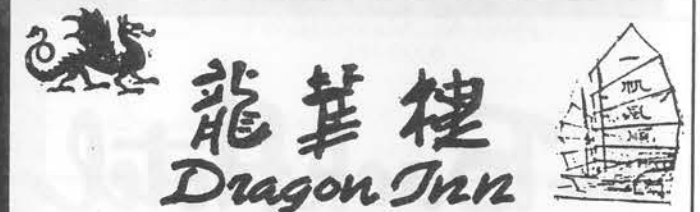 龍華樓
Dragon Inn
一帆風順